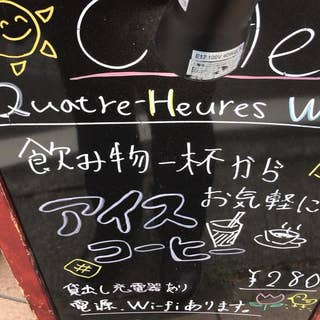 Quatre-Heures W
飲み物一杯から
お気軽に
アイス
コーヒー
¥280
#
貸出し充電器あり
電源、Wi-fiあります。